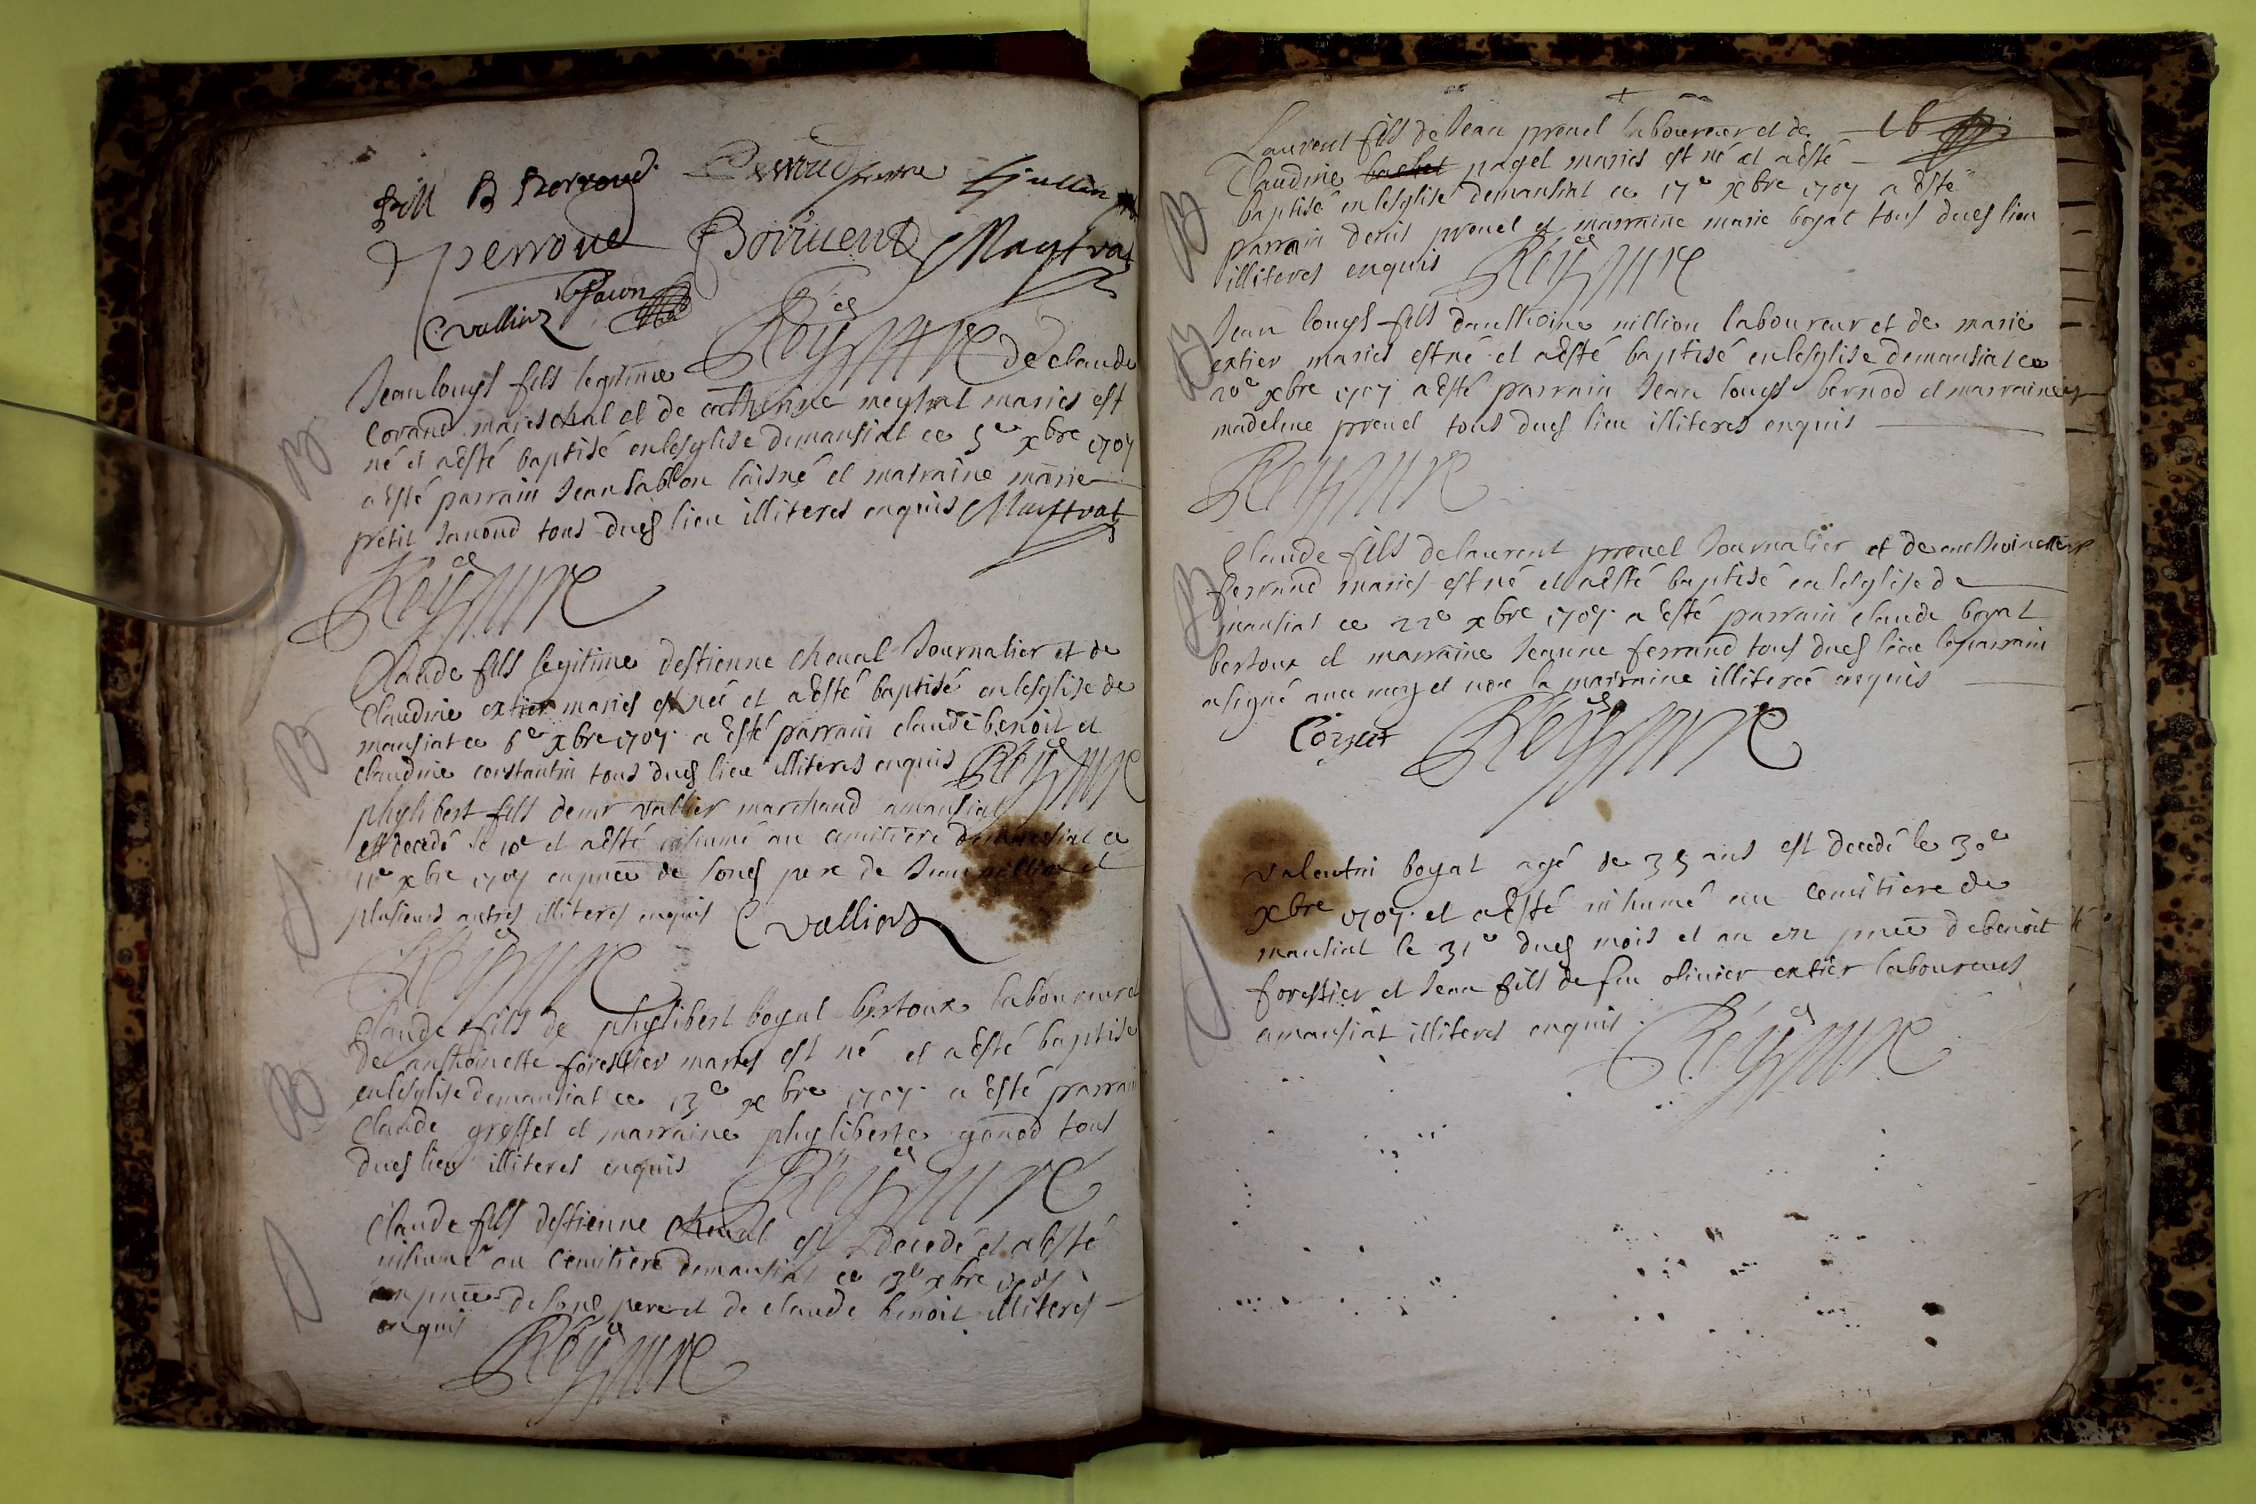 B Perroud Perrud pierre Gullin
perroud Boriuent Maystrat
C vallier
Reymure
Jean louys fils legitime de claude
Corand mareschal et de catherine meystrat maries est
né et a esté baptisé en lesglise de mansiat ce 5e xbre 1707
a esté parrain Jean sablon laisné et marraine marie
petit Janond tous dud lieu illiteres enquis Maystrat
Reymure
B
Claude fils legitime destienne cheval Journalier et de
Claudine extier maries est né et a esté baptisé en lesglise de
mansiat ce 6e xbre 1707 a esté parrain claude benoit et
claudine constantin tous dud lieu illiteres enquis Reymure
B
phylibert fils de mr vallier marchand a mansiat
est decedé le 10e et a esté inhumé au cemitiere de mansiat ce
11e xbre 1707 en pnce de sond pere de Jean million et
plusieurs autres illiteres enquis C vallier
Reymure
Claude fils de phylibert boyat bertoux laboureur et
de anthoinette forestier maries est né et a esté baptisé
en lesglise de mansiat ce 13e xbre 1707 a esté parrain
Claude groffet et marraine phyliberte gonod tous
dud lieu illiteres enquis Reymure
B
Claude fils destienne cheval est decedé et a esté
inhumé au cemitiere de mansiat ce 13e xbre 1707
en pnce de sond pere et de claude benoit illiteres
enquis
Reymure
16
Laurent fils de Jean prevel laboureur et de
Claudine bachet pagel maries est né et a esté
baptisé en lesglise de mansiat ce 17e xbre 1707 a esté
parrain denis prevel et marraine marie boyat tous dud lieu
illiteres enquis Reymure
B
Jean louys fils danthoine million laboureur et de marie
extier maries est né et a esté baptisé en lesglise de mansiat ce
20e xbre 1707 a esté parrain Jean louys bernod et marraine
madeleine prevel tous dud lieu illiteres enquis
Reymure
B
Claude fils de laurent prevel Journalier et de anthoinette
ferrand maries est né et a esté baptisé en lesglise de
mansiat ce 22e xbre 1707 a esté parrain claude boyat
bertoux et marraine Jeanne ferrand tous dud lieu le parrain
a signé avec moy et non la marraine illiteree enquis
Reymure
B
valentin boyat agé de 35 ans est decedé le 30e
xbre 1707 et a esté inhumé au cemitiere de
mansiat le 31e dud mois et an en pnce de benoit
forestier et Jean fils de feu olivier extier laboureurs
a mansiat illiteres enquis
Reymure